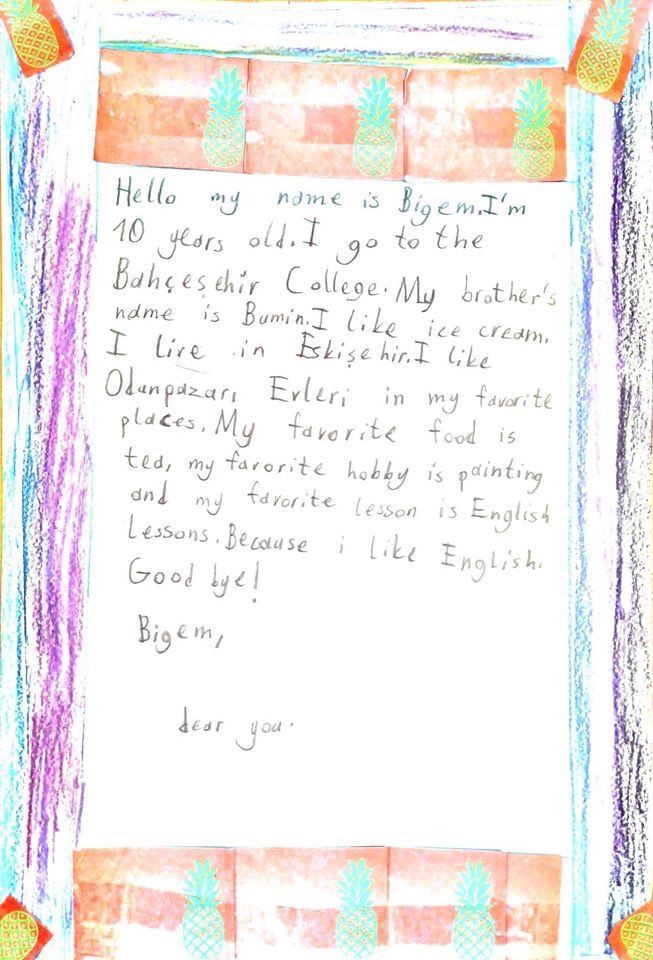 Hello my name is Bigem.I'm
10 years old.I go to the
Bahçeşehir College.My brother's
name is Bumin.I like ice cream.
I live in Eskişehir.I like
Odanpazarı Evleri in my favorite
places.My favorite food is
tea, my favorite hobby is painting
and my favorite lesson is English
Lessons.Because i like English.
Good bye!
Bigem,
dear you.